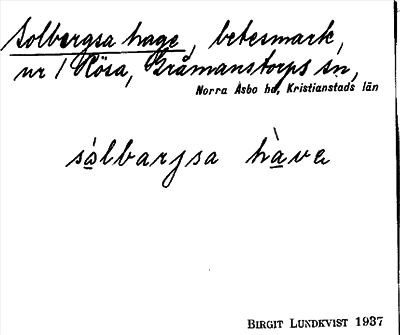 Solbergsa hage, betesmark,
nr 1 Rösa, Gråmanstorps sn,
Norra Åsbo hd, Kristianstads län
sålbarjsa håva
BIRGIT LUNDKVIST 1937